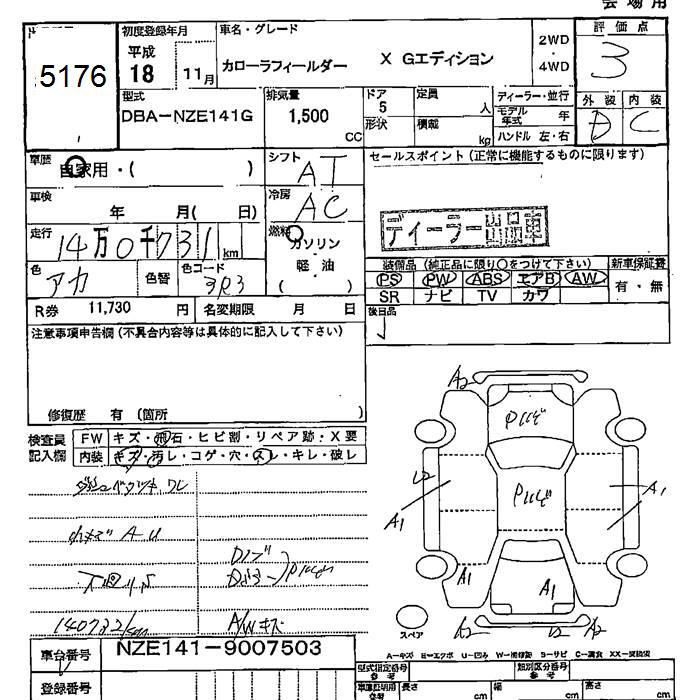 会場用
5176
初度登録年月
平成
18 11月
車名・グレード
カローラフィールダー X Gエディション
2WD
4WD
評価点
3
型式
DBA-NZE141G
排気量
1,500
CC
ドア
5
形状
定員
人
積載
kg
ディーラー・並行
モデル年式 年
ハンドル 左・右
外装 内装
D C
車歴
自家用・( )
シフト
AT
冷房
AC
燃料
ガソリン
軽・油
( )
車検
年 月( 日)
走行
14万0千731km
色
アカ
色替
色コード
3R3
R券 11,730 円
名変期限 月 日
セールスポイント(正常に機能するものに限ります)
ディーラー出品車
装備品(純正品に限り○をつけて下さい)
新車保証書
PS PW ABS エアB AW
有・無
SR ナビ TV カワ
後日品
注意事項申告欄(不具合内容等は具体的に記入して下さい)
修復歴 有(箇所 )
検査員
記入欄
FW キズ・飛石・ヒビ割・リペア跡・X要
内装 キズ・汚レ・コゲ・穴・スレ・キレ・破レ
140731km
A/Wキズ
A2
U2
A1
A1
A1
A1
A2 U2 A2
スペア
A-キズ E-エクボ U-凹み W-補修跡 S-サビ C-腐食 XX-交換済
車台番号
NZE141-9007503
登録番号
型式指定番号
参考
類別区分番号
参考
車庫証明用
参考
長さ cm
幅 cm
高さ cm